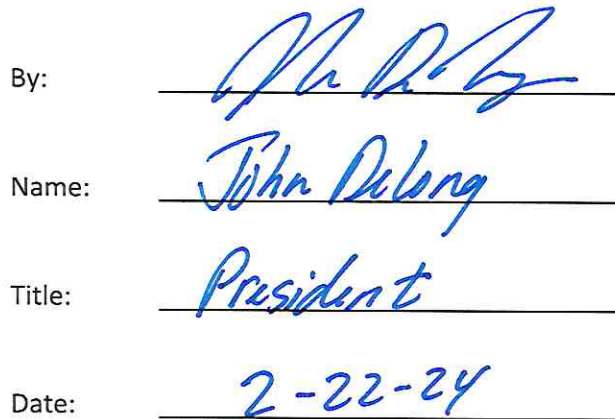 By:
Name: John DeLong
Title: President
Date: 2-22-24